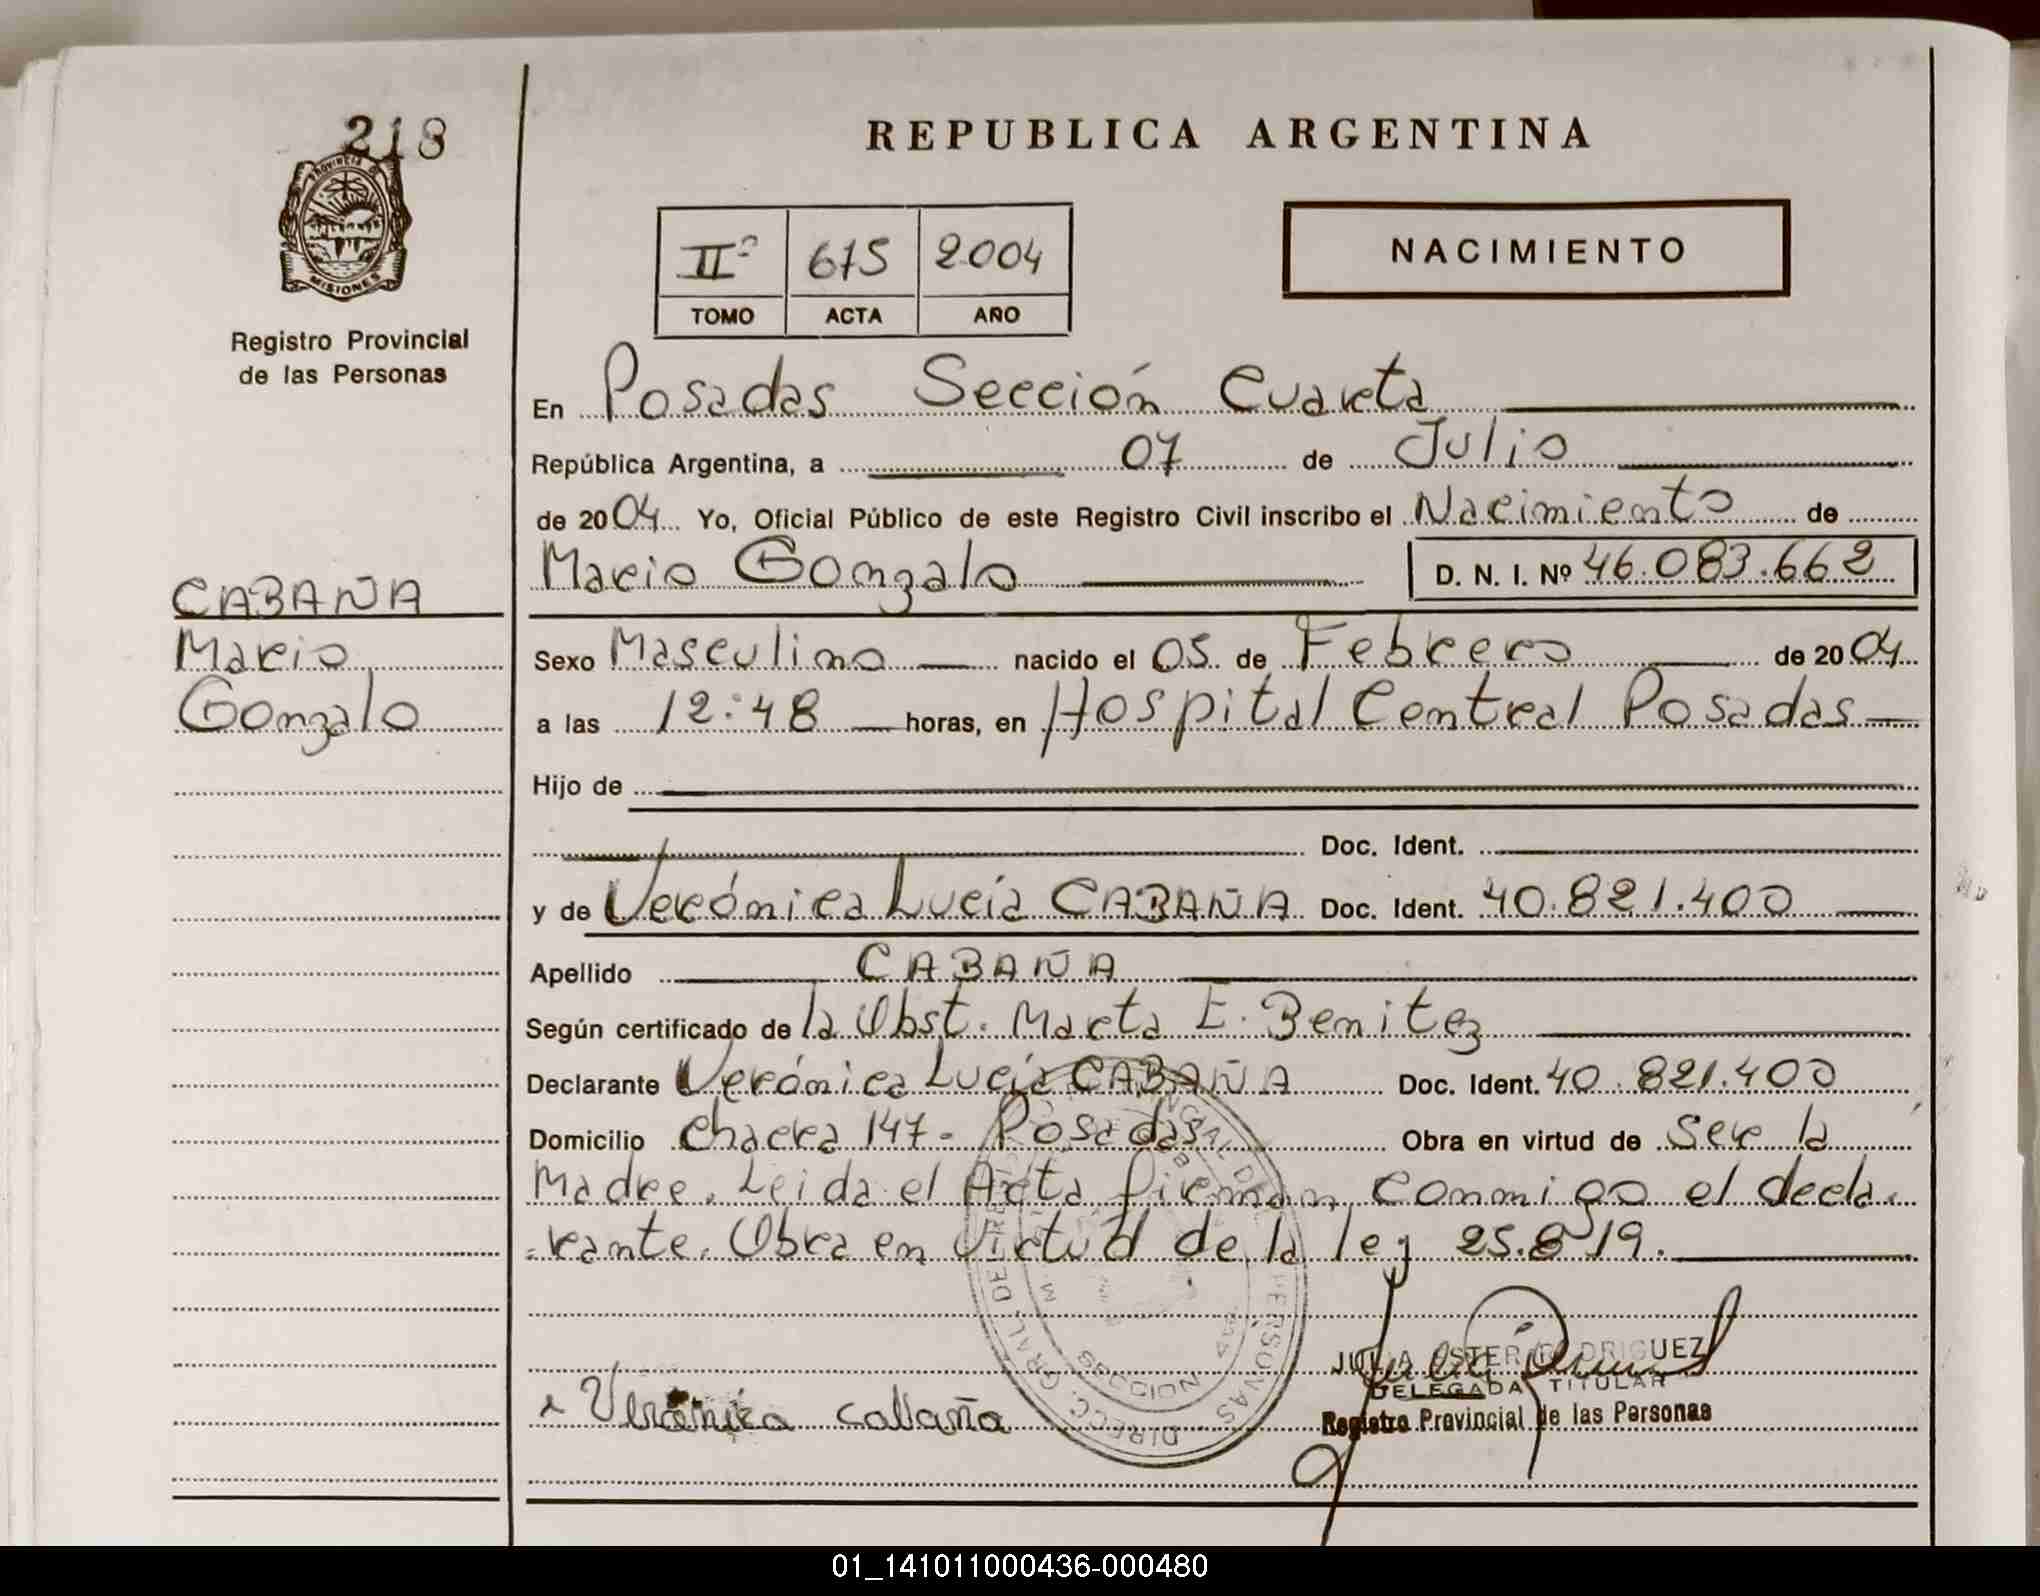 218
PROVINCIA DE
MISIONES
Registro Provincial
de las Personas
REPUBLICA ARGENTINA
IIº 675 2004
TOMO ACTA AÑO
NACIMIENTO
En Posadas Sección Cuarta
República Argentina, a 07 de Julio
de 2004 Yo, Oficial Público de este Registro Civil inscribo el Nacimiento de
Mario Gonzalo D. N. I. Nº 46.083.662
CABAÑA
Mario
Gonzalo
Sexo Masculino nacido el 05 de Febrero de 2004
a las 12:48 horas, en Hospital Central Posadas
Hijo de
Doc. Ident.
y de Verónica Lucía CABAÑA Doc. Ident. 40.821.400
Apellido CABAÑA
Según certificado de la Obst. Marta E. Benitez
Declarante Verónica Lucía CABAÑA Doc. Ident. 40.821.400
Domicilio Chacra 147- Posadas Obra en virtud de Ser la
Madre. Leida el Acta firman conmigo el decla-
-rante. Obra en virtud de la ley 25.819.
JULIA ESTER RODRIGUEZ
DELEGADA TITULAR
Registro Provincial de las Personas
Verónica cabaña
01_141011000436-000480